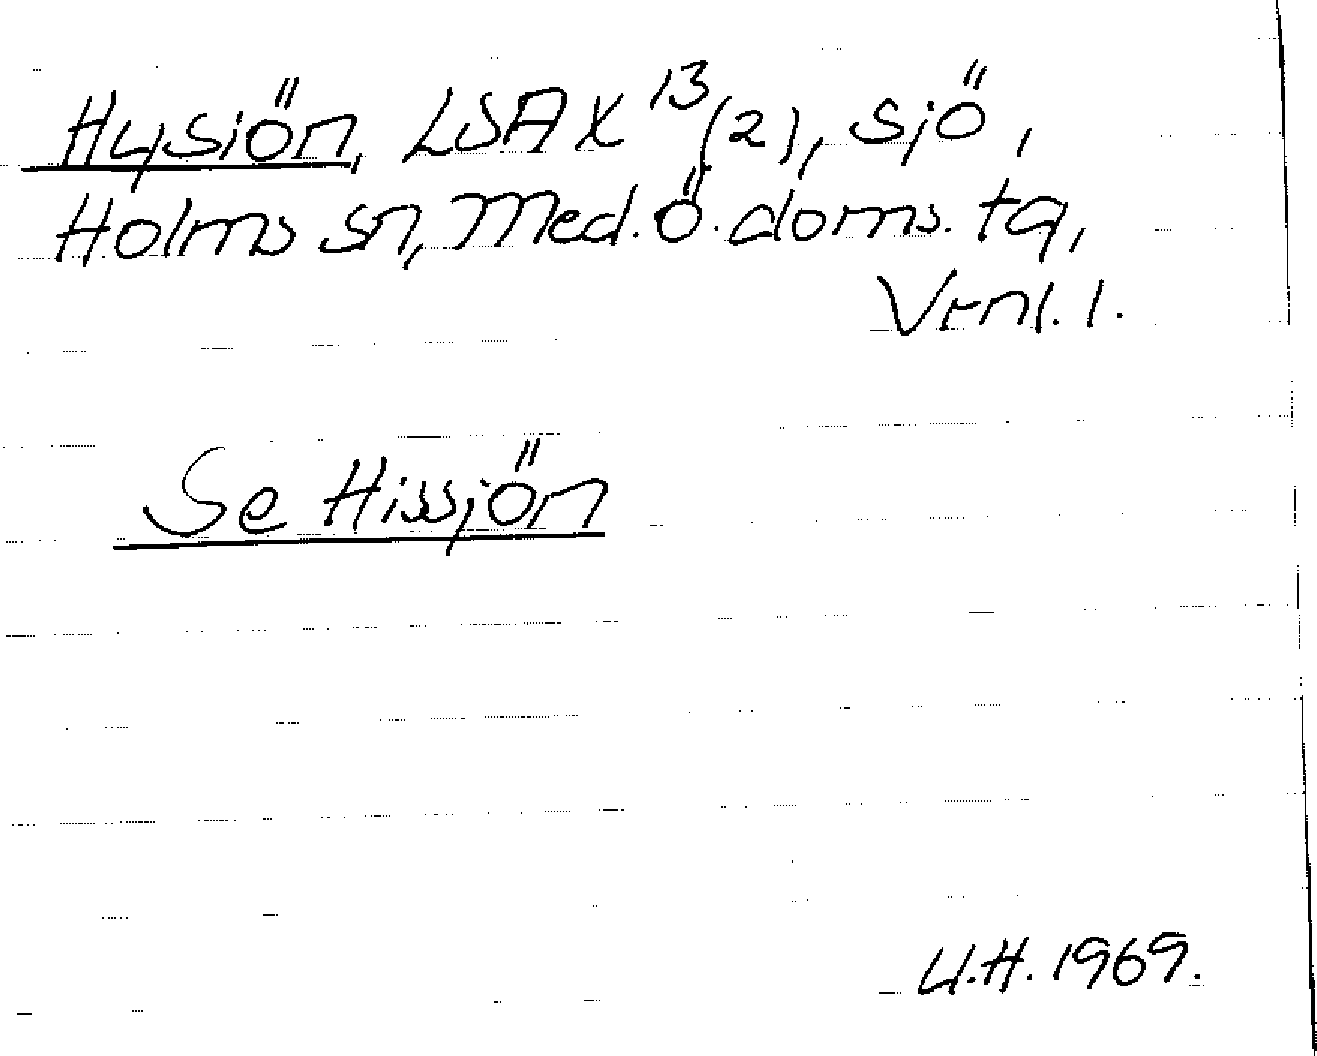 Hysiön, LSA X 13 (2), sjö,
Holms sn, Med. Ö. doms. tg,
Vrnl. l.
Se Hissjön
U.H. 1969.